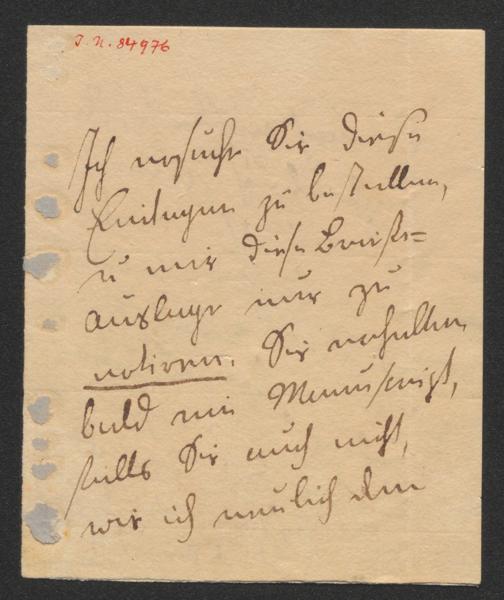 J. N. 84976
Ich ersuche Sie diese
Einlagen zu bestellen,
u mir diese Briefs=
auslage nur zu
notiren. Sie erhalten
bald ein Manuscript,
falls Sie auch nicht,
wie ich neulich den